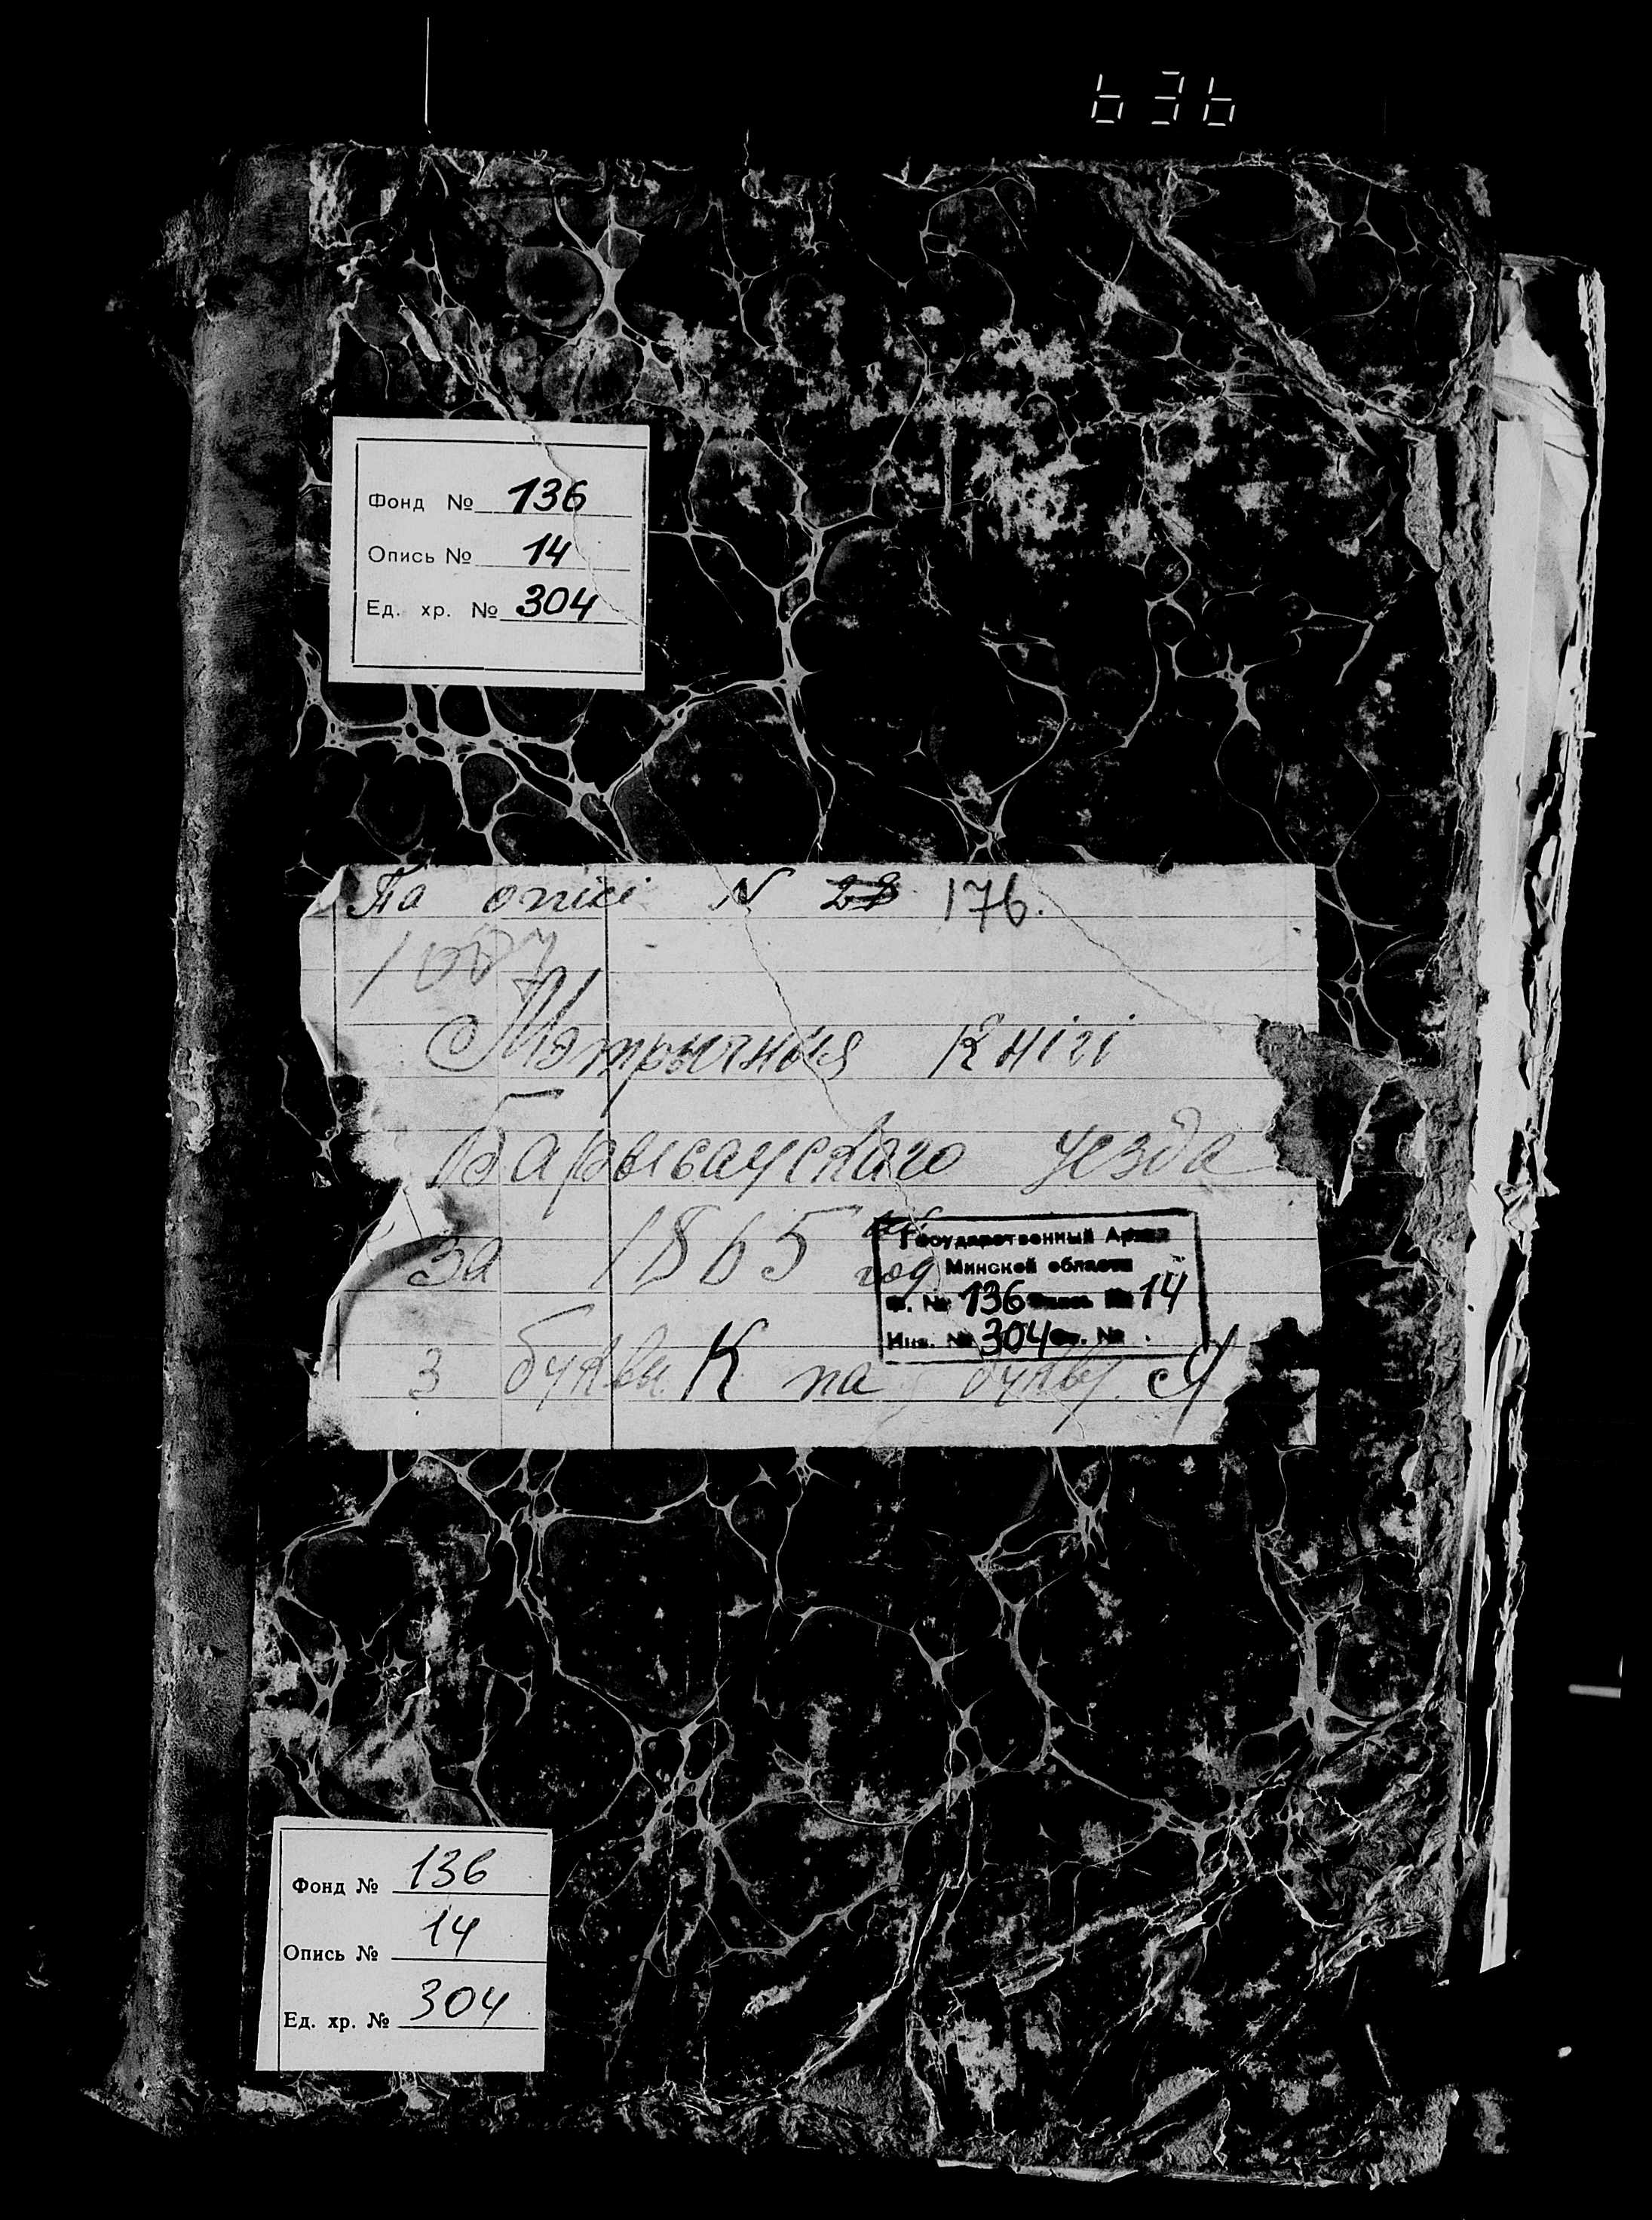 636
Фонд № 136
Опись № 14
Ед. хр. № 304
Па опісі N 28 176.
1007
Мэтрычныя Кнігі
Барысаускаго уезда
За 1865 год
Государственный Архив
Минской области
Ф. № 136 Опись № 14
Инв. № 304 Св. № .
З буквы К па букву Я
Фонд № 136
Опись № 14
Ед. хр. № 304